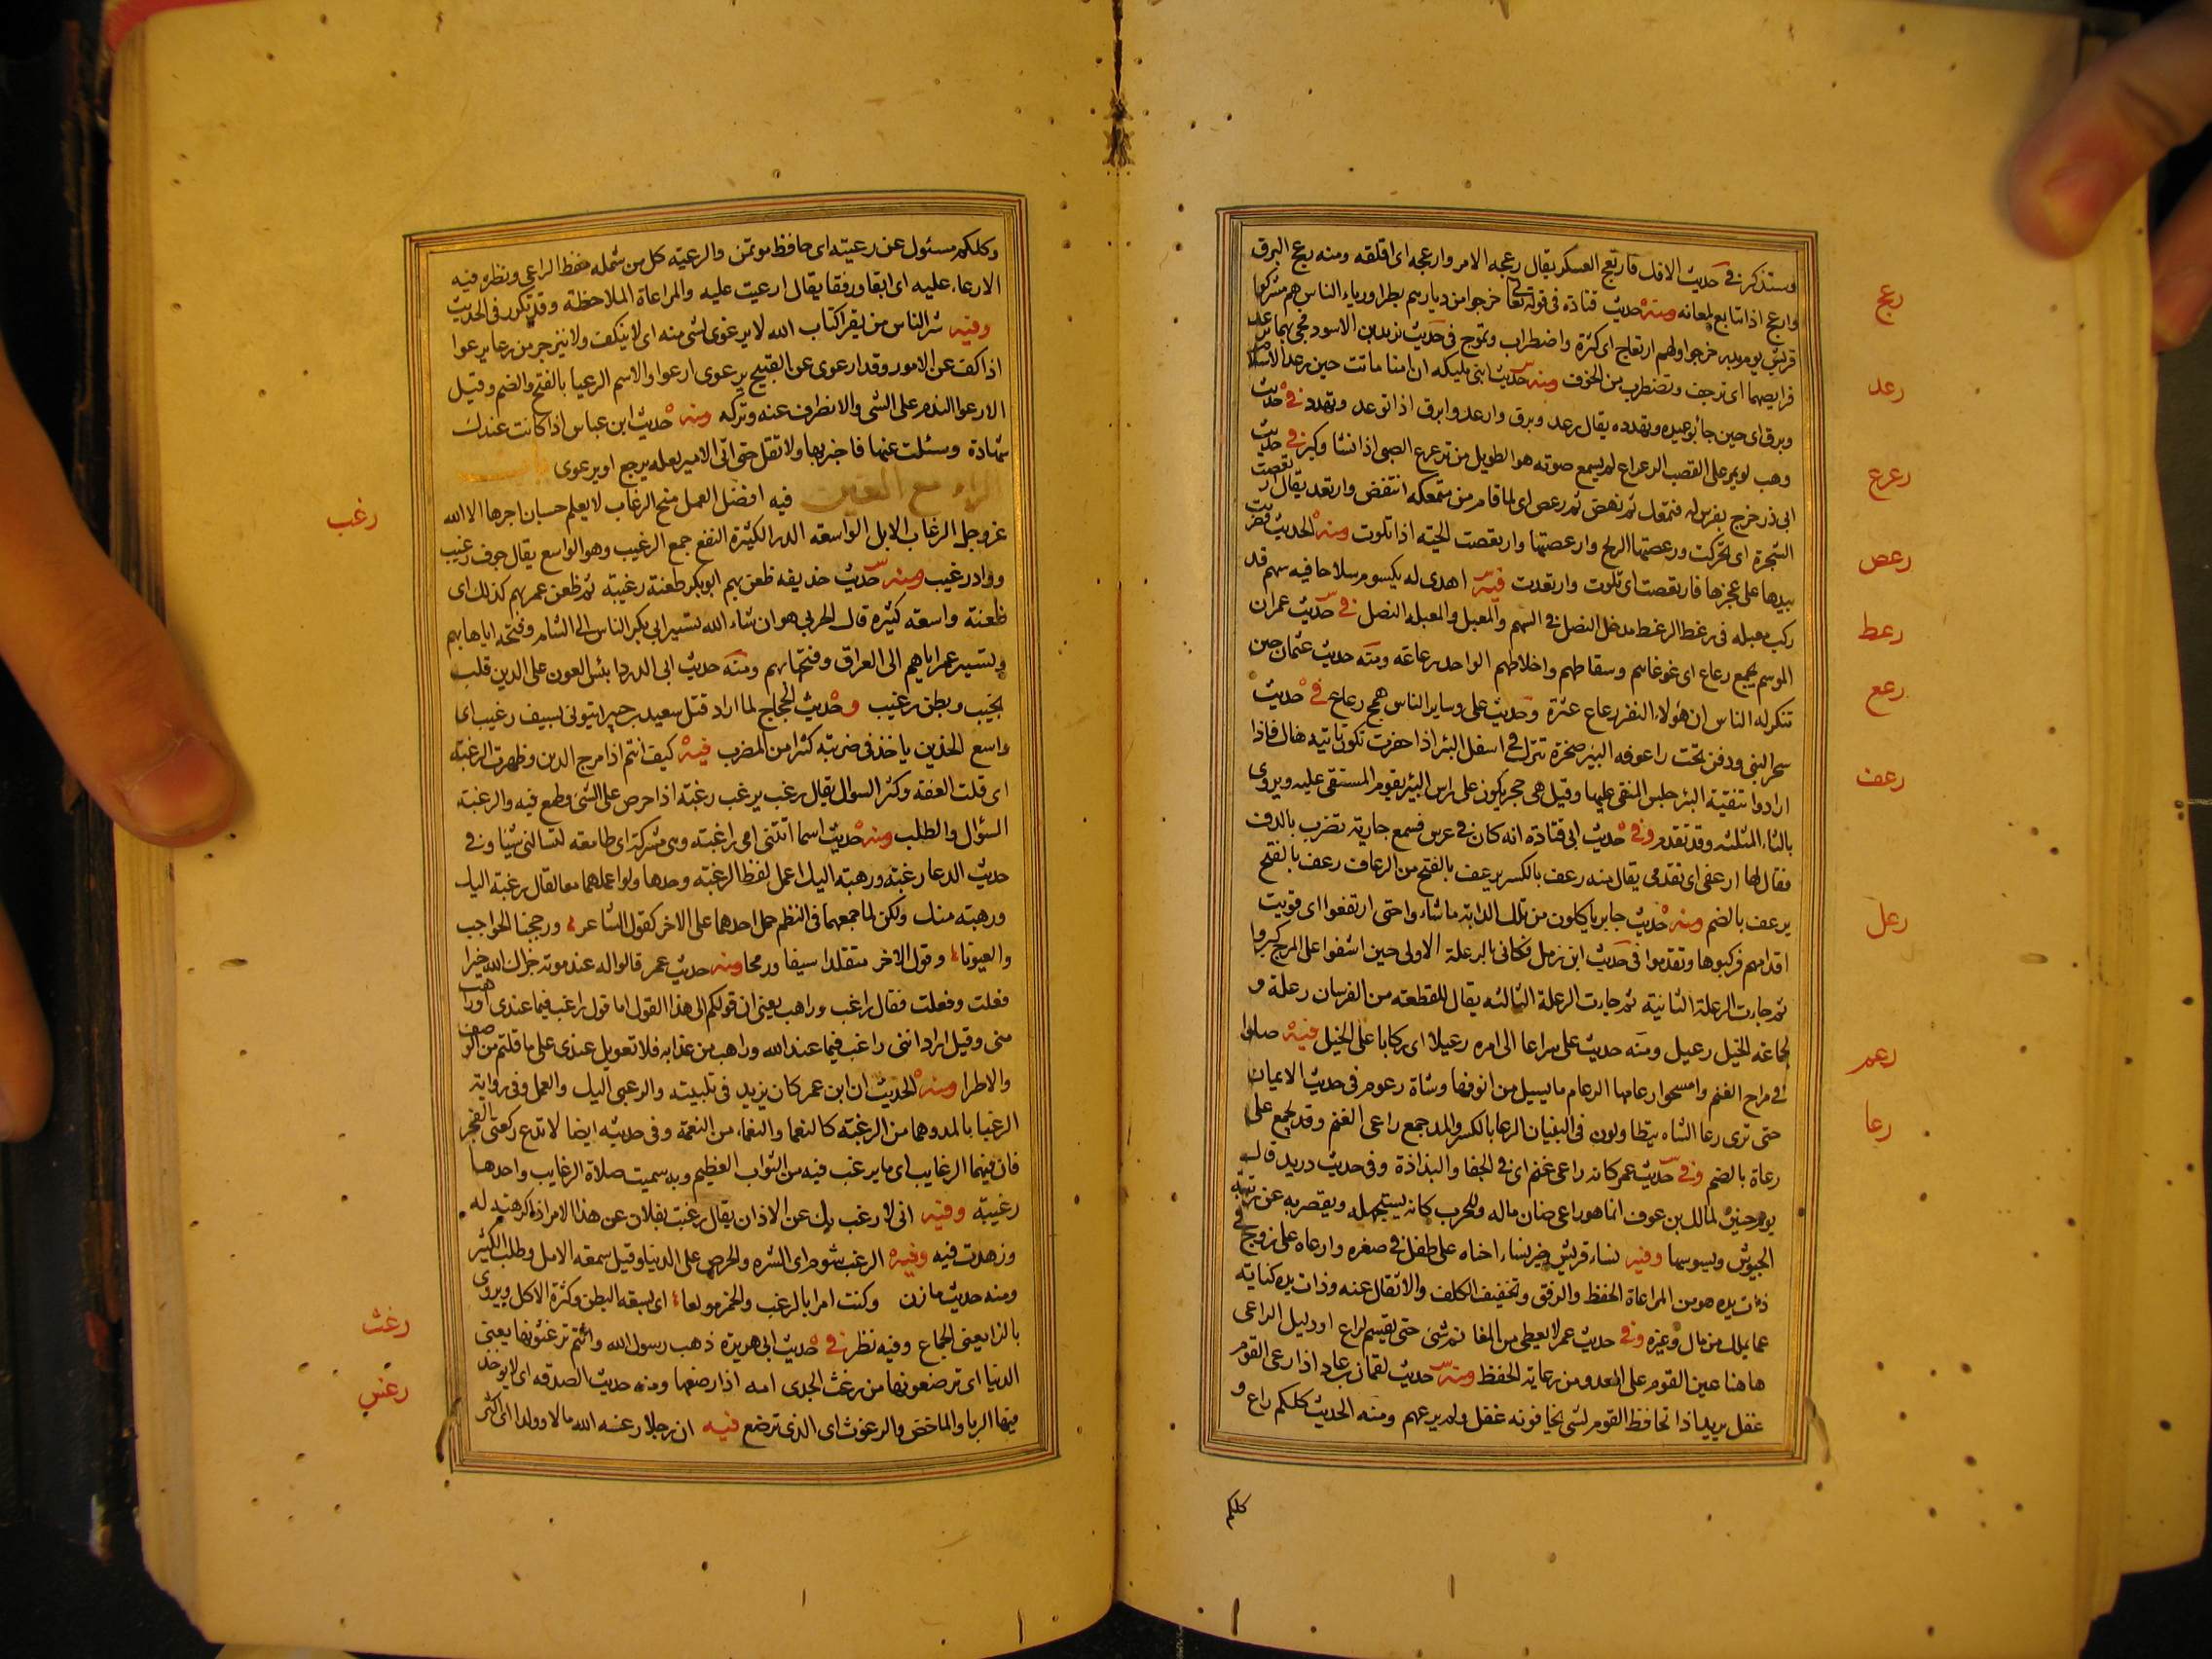 وستذكر في حديث الافك فارتعج العسكر يقال رعجه الامر وارعجه اى اقلقه ومنه رعج البرق
رعج
وارعج اذا تتابع لمعانه ومنه حديث قتادة في قوله تعالى خرجوا من ديارهم بطرا ورياء الناس هم مشركوا
قريش يوم بدر خرجوا ولهم ارتعاج اى كثرة واضطراب وتموج في حديث يزيد بن الاسود فجئ بهما ترعد
رعد
فرايصهما اى ترجف وتضطرب من الخوف ومنه حديث ابني مليكه ان امنا ماتت حين رعد الاسلام
وبرق اى حين جا بوعيده وتهدده يقال رعد وبرق وارعد وابرق اذا توعد وتهدد في حديث
رعرع
وهب لو يمر على القصب الرعراع لم يسمع صوته هو الطويل من ترعرع الصبى اذا نشا وكبر في حديث
ابى ذر خرج بفرس له فتمعك ثم نهض ثم رعص اى لما قام من متمعكه انتفض وارتعد يقال ارتعصت
رعص
الشجرة اى تحركت ورعصتها الريح وارعصتها وارتعصت الحية اذا تلوت ومنه الحديث فضربت
بيدها على عجزها فارتعصت اى تلوت وارتعدت فيه اهدى له يكسوم سلاحا فيه سهم قد
رعط
ركب معبله في رعظ الرعظ مدخل النصل في السهم والمعبل والمعبله النصل في حديث عمر ان
الموسم يجمع رعاع اى غوغاهم وسقاطهم واخلاطهم الواحد رعاعة ومنه حديث عثمان حين
رعع
تنكر له الناس ان هؤلاء النفر رعاع عثرة وحديث على وساير الناس همج رعاع في حديث
سحر النبى ودفن تحت راعوفه البير صخرة تترك في اسفل البئر اذا حفرت تكون ناتيه هناك فاذا
رعف
ارادوا تنقية البئر جلس المنقى عليها وقيل هى حجر يكون على راس البئر يقوم المستقى عليه ويروى
بالثاء المثلثه وقد تقدم وفي حديث ابى قتادة انه كان في عرس فسمع جارية تضرب بالدف
فقال لها ارعفى اى تقدمى يقال منه رعف بالكسر يرعف بالفتح من الرعاف رعف بالفتح
يرعف بالضم ومنه حديث جابر ياكلون من تلك الدابة ماشاء واحتى ارتفعوا اى قويت
رعل
اقدامهم فركبوها وتقدموا في حديث ابن زمل فكانى بالرعلة الاولى حين اشفوا على المرج كبروا
ثم جاءت الرعلة الثانية ثم جاءت الرعلة الثالثه يقال للقطعه من الفرسان رعلة و
لجماعة الخيل رعيل ومنه حديث على سراعا الى امره رعيلا اى ركابا على الخيل فيه صلوا
رعم
في مراح الغنم وامسحوا رعامها الرعام ما يسيل من انوفها وشاة رعوم في حديث الايمان
رعا
حتى ترى رعا الشاه يتطاولون في البنيان الرعا بالكسر والمد جمع راعى الغنم وقد يجمع على
رعاة بالضم وفي حديث عمر كانه راعى غنم اى في الجفا والبذاذة وفي حديث دريد قال
يوم حنين لمالك بن عوف انما هو راعى ضان ماله وللحرب كانه يستجهله ويقصر به عن رتبة
الجيوش ويسوسها وفيه نساء قريش خير نساء احناه على طفل في صغره وارعاه على زوج في
ذات يده هو من المراعاة الحفظ والرفق وتخفيف الكلف والاثقال عنه وذات يده كناية
عما يملك من مال وغيره وفي حديث عمر لا يعطى من المغانم شئ حتى تقسم لراع او دليل الراعى
هاهنا عين القوم على العدو من رعاية الحفظ ومنه حديث لقمان بن عاد اذا رعى القوم
غفل يريد اذا تحافظ القوم لشئ يخافونه غفل ولم يرعهم ومنه الحديث كلكم راع و
كلكم
وكلكم مسئول عن رعيته اى حافظ موتمن والرعيه كل من شمله حفظ الراعى ونظره فيه
الارعاء عليه اى ابقا ورفقا يقال ارعيت عليه والمراعاة الملاحظة وقد تكرر في الحديث
وفيه شر الناس من يقرا كتاب الله لا يرعوى لشئ منه اى لا ينكف ولا ينزجر من رعا يرعوا
اذا كف عن الامور وقد ارعوى عن القبيح يرعوى ارعوا والاسم الرعيا بالفتح والضم وقيل
الارعوا الندم على الشئ والانطراف عنه وتركه ومنه حديث ابن عباس اذا كانت عندك
شهادة وسئلت عنها فاخبر بها ولا تقل حتى اتى الامير لعله يرجع او يرعوى
الراء مع الغين فيه افضل العمل منح الرغاب لا يعلم حسبان اجرها الا الله
رغب
عزوجل الرغاب الابل الواسعة الدر الكثيرة النفع جمع الرغيب وهو الواسع يقال جوف رغيب
وواد رغيب ومنه حديث حذيفه ظعن بهم ابو بكر ظعنة رغيبة ثم ظعن عمر بهم كذلك اى
ظعنة واسعة كثيره قال الحربى هو ان شاء الله تسيير ابى بكر الناس الى الشام وفتحه اياها بهم
وتسيير عمر اياهم الى العراق وفتحها بهم ومنه حديث ابى الدردا بئس العون على الدين قلب
نخيب وبطن رغيب وحديث الحجاج لما اراد قتل سعيد بن جبير ايتونى بسيف رغيب اى
واسع الحدين ياخذ في ضربته كثيرا من المضرب فيه كيف انتم اذا مرج الدين وظهرت الرغبة
اى قلت العفة وكثر السوال يقال رغب يرغب رغبة اذا حرص على الشئ وطمع فيه والرغبة
السؤال والطلب ومنه حديث اسما اتتنى امى راغبة وهى مشركة اى طامعه تسالنى شيئا وفي
حديث الدعا رغبة ورهبة اليك اعمل لفظ الرغبة وحدها ولو اعملهما معا لقال رغبة اليك
ورهبة منك ولكن لما جمعهما في النظم حمل احدهما على الاخر كقول الشاعر وزججنا الحواجب
والعيونا وقول الاخر متقلدا سيفا ورمحا ومنه حديث عمر قالوا له عند موته جزاك الله خيرا
فعلت وفعلت فقال راغب وراهب يعنى ان قولكم لى هذا القول اما قول راغب فيما عندى او راهب
منى وقيل اراد اننى راغب فيما عند الله وراهب من عذابه فلا تعويل عندى على ما قلتم من الوصف
والاطرا ومنه الحديث ان ابن عمر كان يزيد في تلبيته والرغبى اليك والعمل وفي رواية
الرغبا بالمد وهما من الرغبة كالنعمى والنعماء من النعمة وفي حديثه ايضا لا تدع ركعتى الفجر
فان فيهما الرغايب اى ما يرغب فيه من الثواب العظيم وبه سميت صلاة الرغايب واحدها
رغيبة وفيه انى لارغب بك عن الاذان يقال رغبت بفلان عن هذا الامر اذا كرهته له
وزهدت فيه وفيه الرغب شوم اى الشره والحرص على الدنيا وقيل سعة الامل وطلب الكثير
ومنه حديث مازن وكنت امرا بالرغب والخمر مولعا اى بسعة البطن وكثرة الاكل ويروى
بالزا يعنى الجماع وفيه نظر في حديث ابى هريرة ذهب رسول الله وانتم ترغثونها يعنى
رغث
الدنيا اى ترضعونها من رغث الجدى امه اذا رضعها ومنه حديث الصدقه اى لا يوخذ
رغس
فيها الربا والماخض والرغوث اى الذى ترضع فيه ان رجلا رغسه الله مالا وولدا اى اكثر